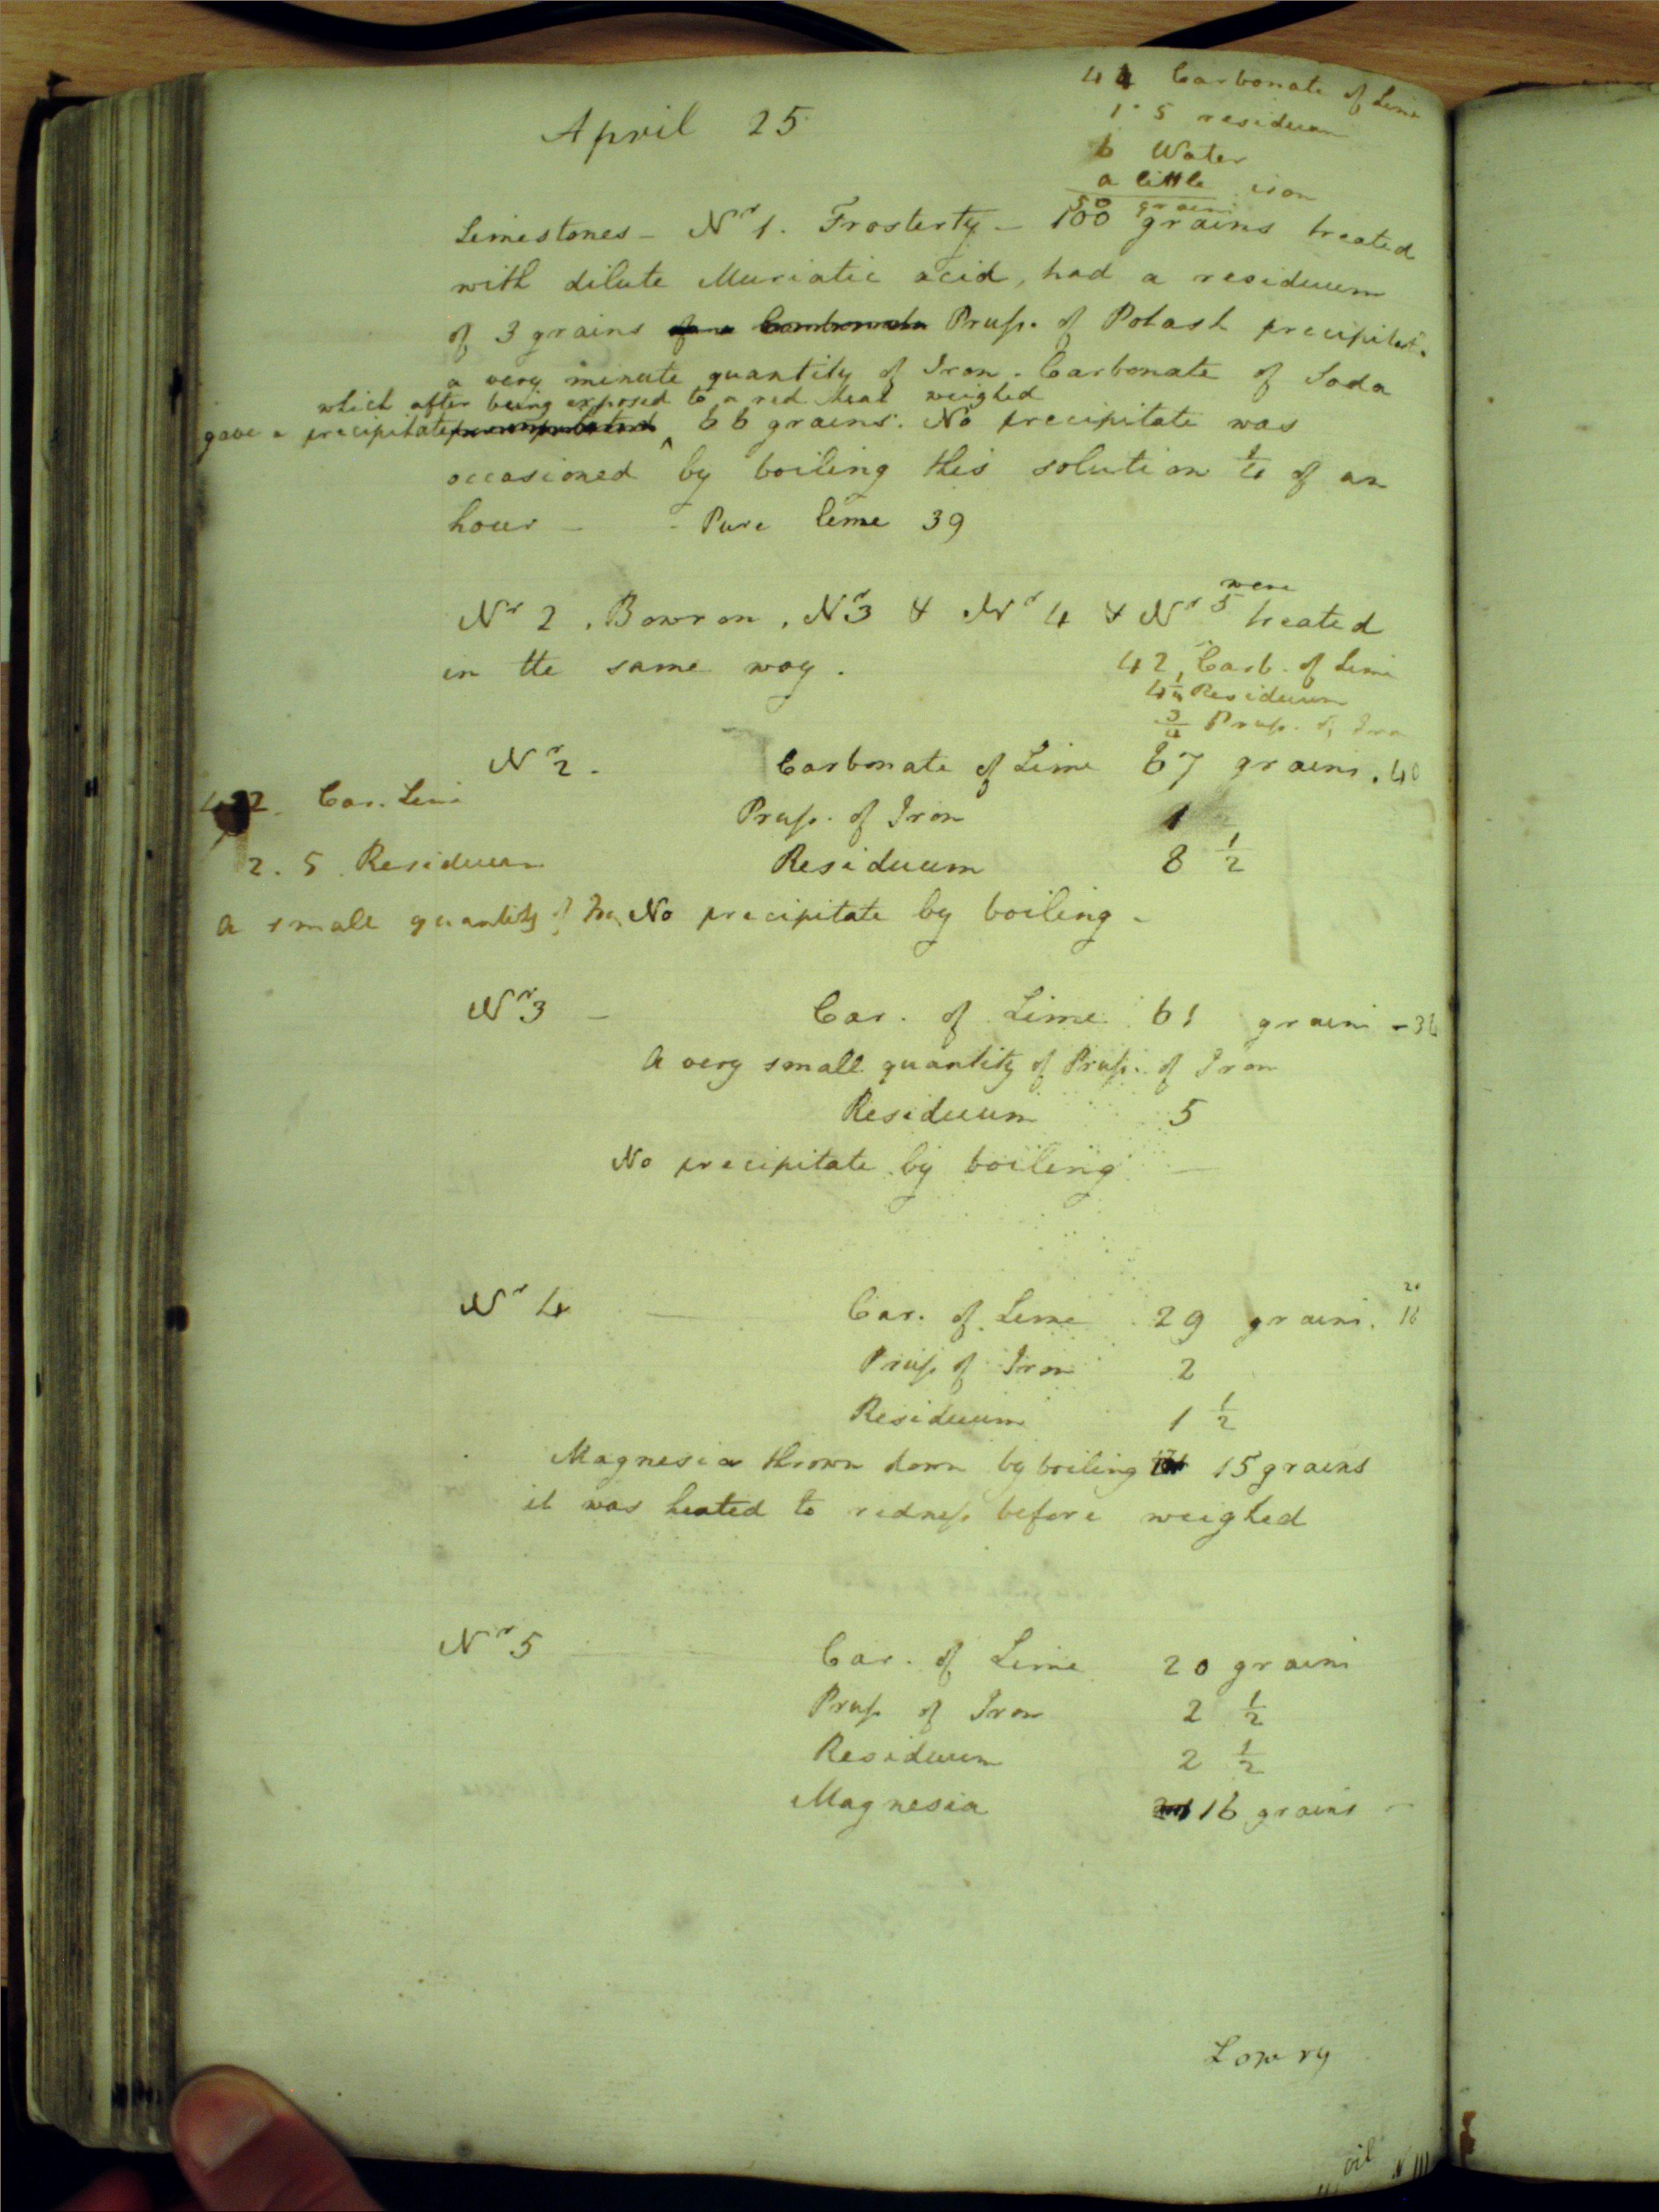 April 25
44 Carbonate of Lime
1. 5 residuum
6 Water
a little iron
50 grains
Limestones - Nr 1. Frosterty - 100 grains treated
with dilute Muriatic acid, had a residuum
of 3 grains Prusſ. of Potash precipitat.
a very minute quantity of Iron. Carbonate of Soda
which after being exposed to a red heat weighed
gave a precipitate ^ 66 grains. No precipitate was
occasioned by boiling this solution 1/4 of an
hour - - Pure lime 39
were
Nr 2, Bowron, Nr 3 & Nr 4 & Nr 5 treated
in the same way.
42 Carb. of Lime
4 1/4 Residuum
3/4 Prusſ. of Iron
Nr 2. Carbonate of Lime 67 grains. 40
Car. Lime
Prusſ. of Iron 1
2. 5 Residuum
Residuum 8 1/2
A small quantity of
No precipitate by boiling -
Nr 3 - Car. of Lime 61 grains -
A very small quantity of Prusſ. of Iron
Residuum 5
No precipitate by boiling -
20
Nr 4 - Car. of Lime 29 grains. 16
Prusſ of Iron 2
Residuum 1 1/2
Magnesia thrown down by boiling 15 grains
it was heated to redneſs before weighed
Nr 5 Car. of Lime 20 grains
Prusſ of Iron 2 1/2
Residuum 2 1/2
Magnesia 16 grains -
Lowry
oil